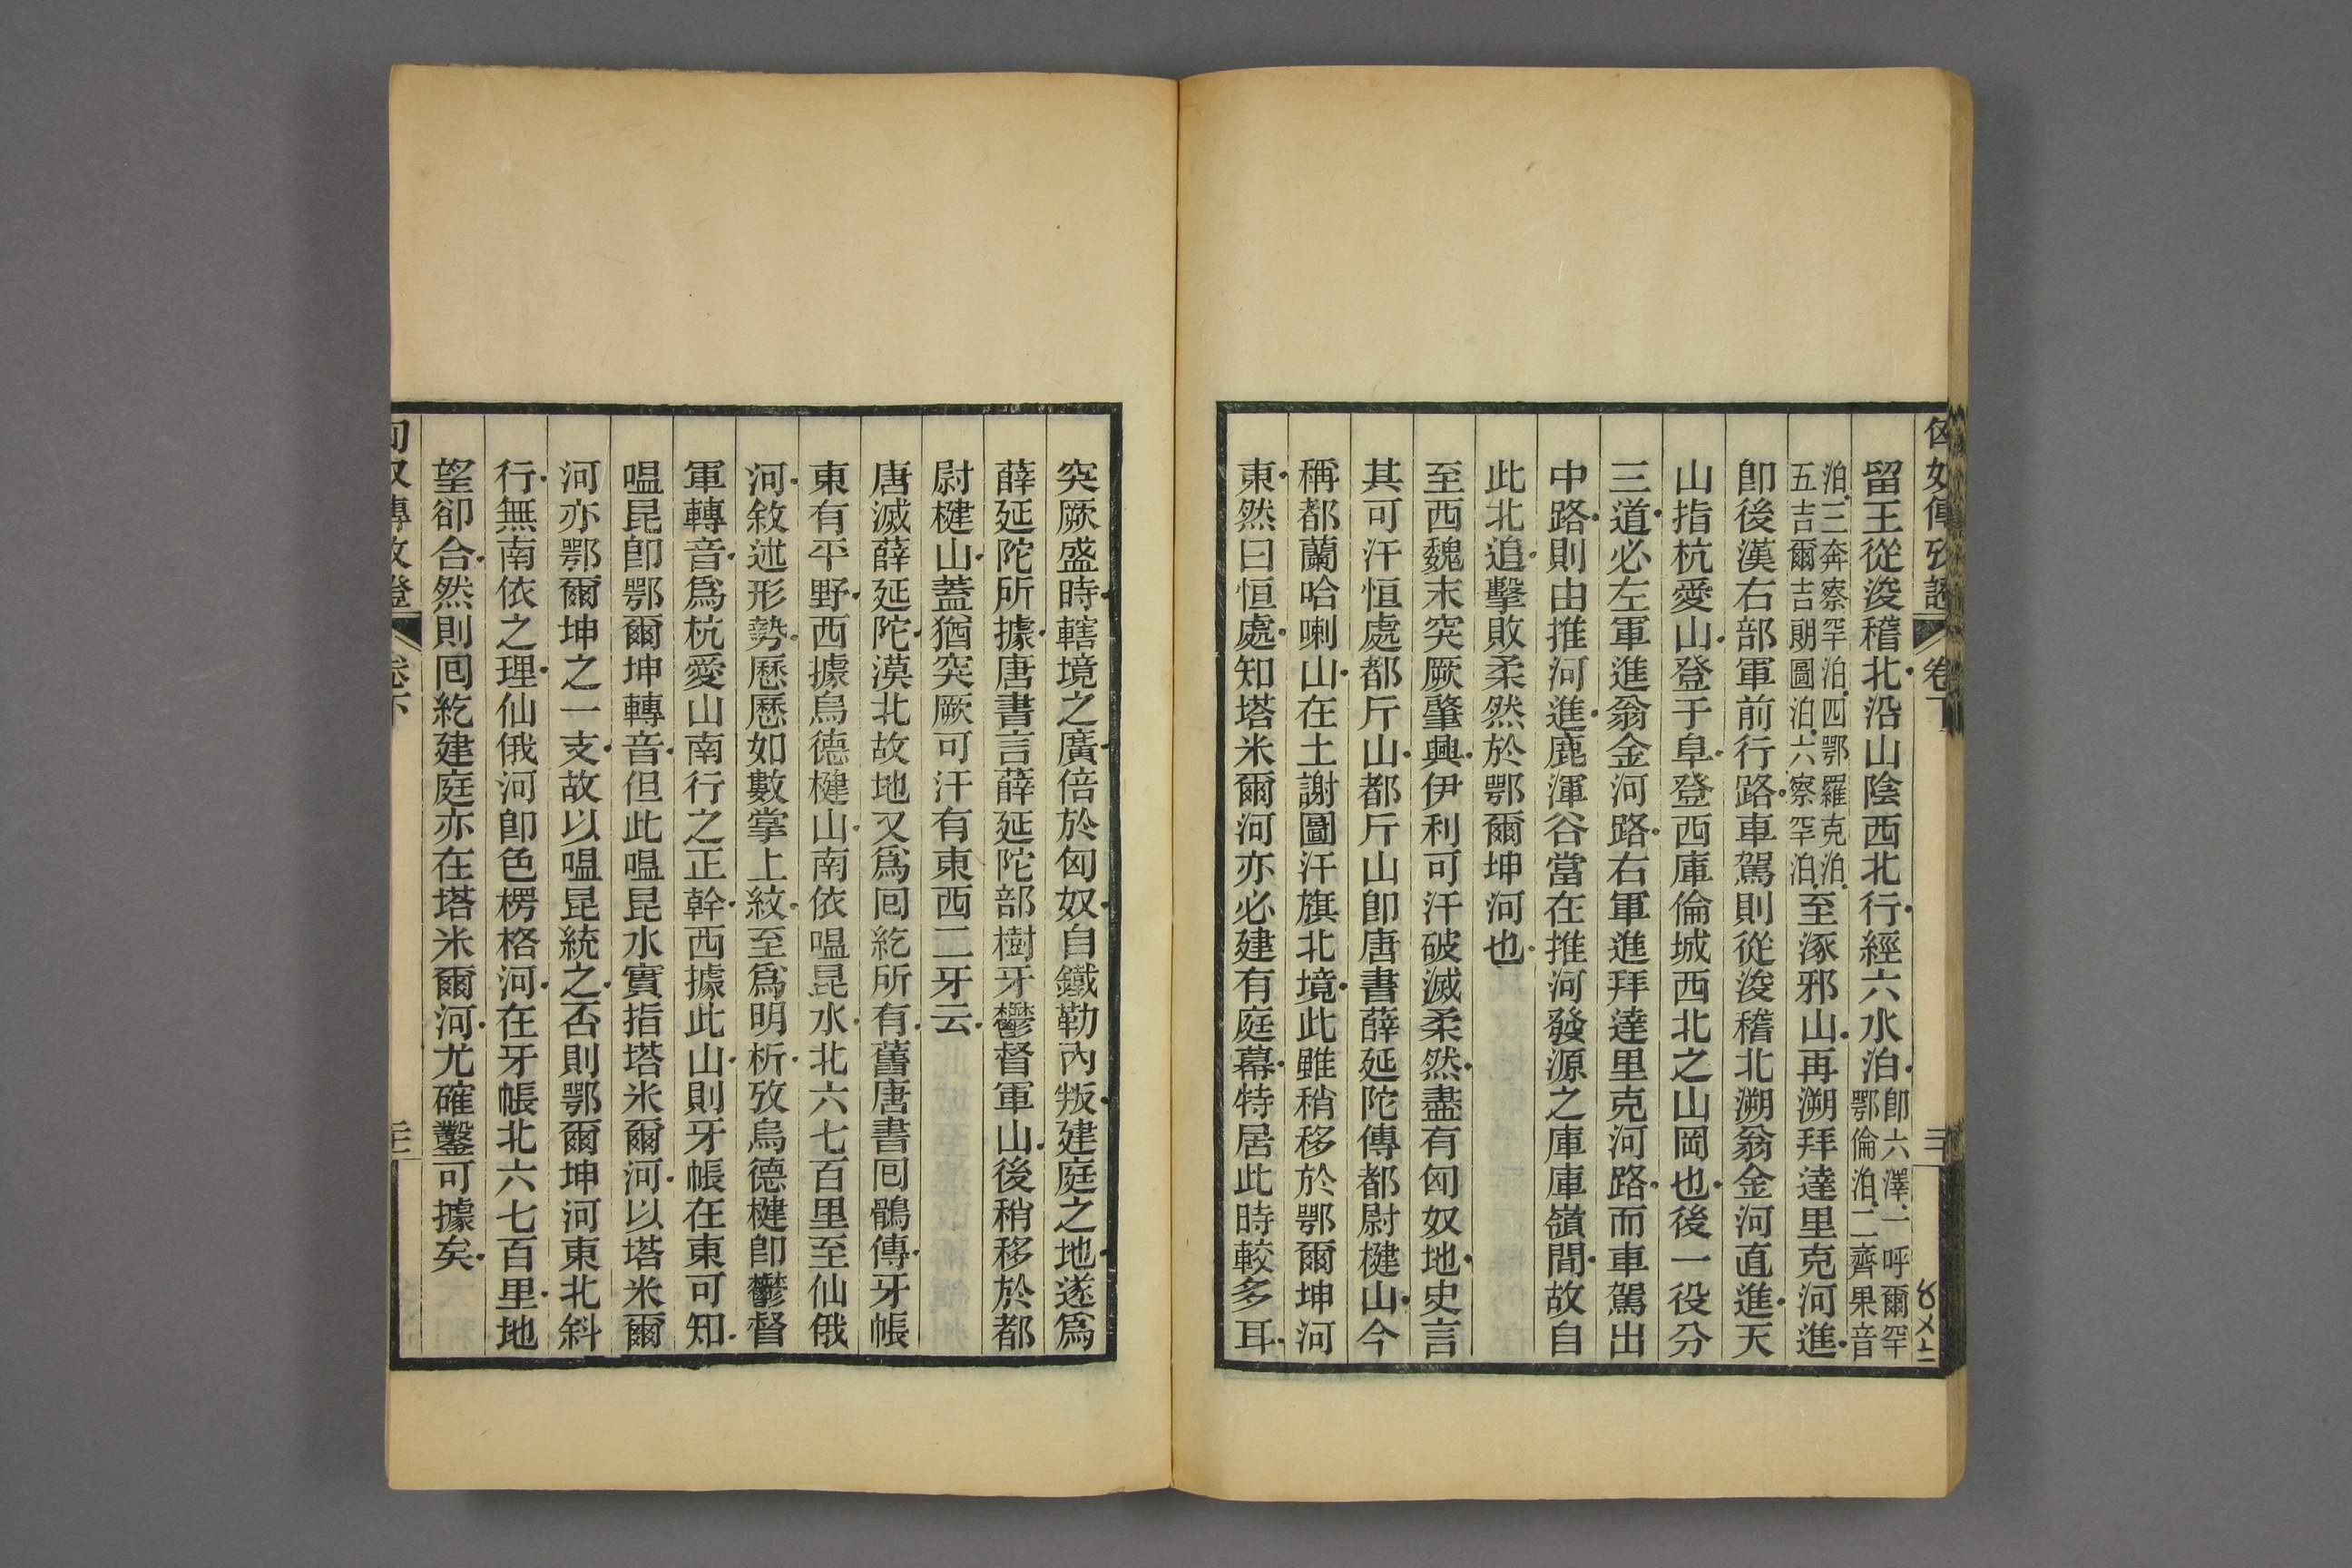 匈奴傳攷證 卷下 三
留王從浚稽北沿山陰西北行經六水泊卽六澤一呼爾罕鄂倫泊二齊果音
泊三奔察罕泊四鄂羅克泊五吉爾吉朗圖泊六察罕泊至涿邪山再溯拜達里克河進
卽後漢右部軍前行路車駕則從浚稽北溯翁金河直進天
山指杭愛山登于阜登西庫倫城西北之山岡也後一役分
三道必左軍進翁金河路右軍進拜達里克河路而車駕出
中路則由推河進鹿渾谷當在推河發源之庫庫嶺間故自
此北追擊敗柔然於鄂爾坤河也
至西魏末突厥肇興伊利可汗破滅柔然盡有匈奴地史言
其可汗恒處都斤山都斤山卽唐書薛延陀傳都尉楗山今
稱都蘭哈喇山在土謝圖汗旗北境此雖稍移於鄂爾坤河
東然曰恒處知塔米爾河亦必建有庭幕特居此時較多耳
突厥盛時轄境之廣倍於匈奴自鐵勒內叛建庭之地遂爲
薛延陀所據唐書言薛延陀部樹牙鬱督軍山後稍移於都
尉楗山蓋猶突厥可汗有東西二牙云
唐滅薛延陀漠北故地又爲囘紇所有舊唐書囘鶻傳牙帳
東有平野西據烏德楗山南依嗢昆水北六七百里至仙俄
河敘述形勢歷歷如數掌上紋至爲明析攷烏德楗卽鬱督
軍轉音爲杭愛山南行之正幹西據此山則牙帳在東可知
嗢昆卽鄂爾坤轉音但此嗢昆水實指塔米爾河以塔米爾
河亦鄂爾坤之一支故以嗢昆統之否則鄂爾坤河東北斜
行無南依之理仙俄河卽色楞格河在牙帳北六七百里地
望卻合然則囘紇建庭亦在塔米爾河尤確鑿可據矣
匈奴傳攷證 卷下